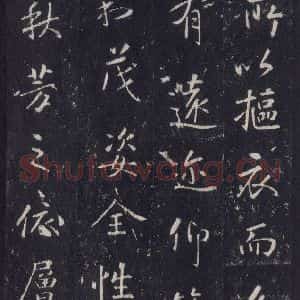 所以摳衣而
有遠近仰
茂姿全性
秋芳層
Shufawang.CN